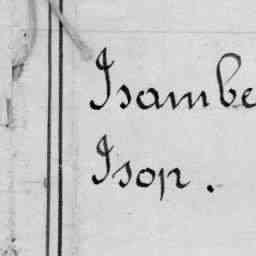 Isambe
Isop.